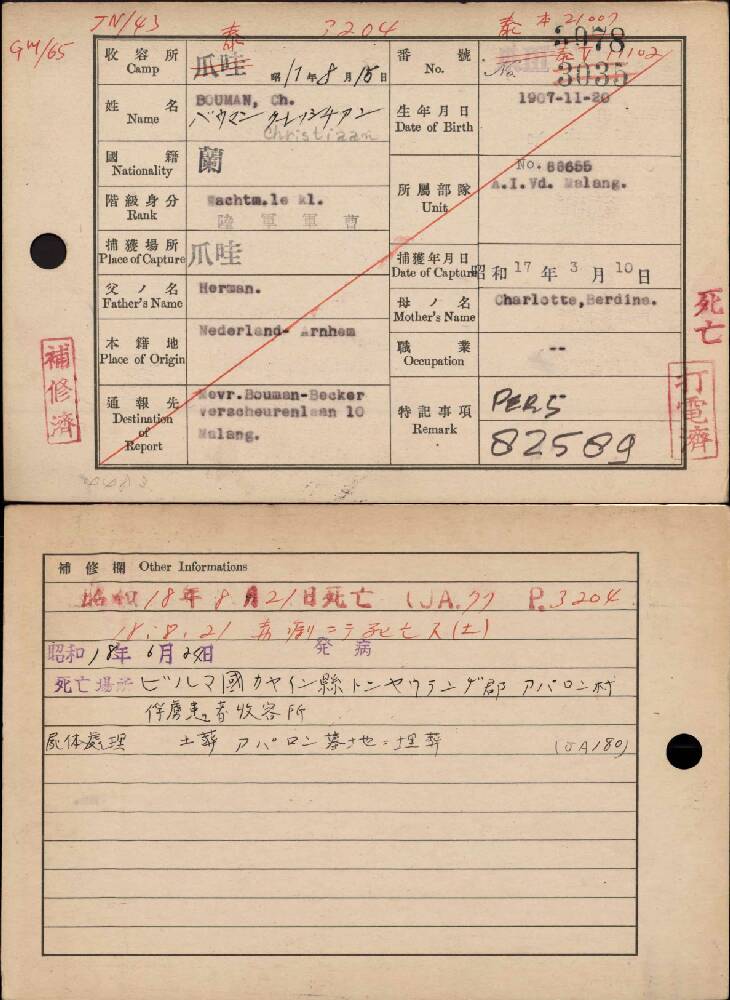 JN/43
GM/65
泰 3204
泰 本 21007
3078
泰 V 11102
収容所 Camp 爪哇 昭17年8月15日
番號 No. No. 3035
姓名 Name BOUMAN, Ch.
バウマン クーレツシチアン
Christiaan
生年月日 Date of Birth 1907-11-20
國籍 Nationality 蘭
所屬部隊 Unit No. 86655
A.I.Vd. Malang.
階級身分 Rank Wachtm.1e kl.
陸軍軍曹
捕獲場所 Place of Capture 爪哇
捕獲年月日 Date of Capture 昭和17年3月10日
父ノ名 Father's Name Herman.
母ノ名 Mother's Name Charlotte,Berdine.
本籍地 Place of Origin Nederland- Arnhem
職業 Occupation --
通報先 Destination of Report Mevr.Bouman-Becker
Verscheurenlaan 10
Malang.
特記事項 Remark PERS
82589
補修濟
死亡
打電濟
補修欄 Other Informations
昭和18年8月21日死亡 (JA.77) P.3204
18.8.21 病ニテ死亡ス(土)
昭和18年6月24日 発病
死亡場所 ビルマ國カヤイン縣トンヤウランゲ郡 アパロン村
俘虜患者收容所
屍体處理 土葬 アパロン墓地ニ埋葬 (JA180)